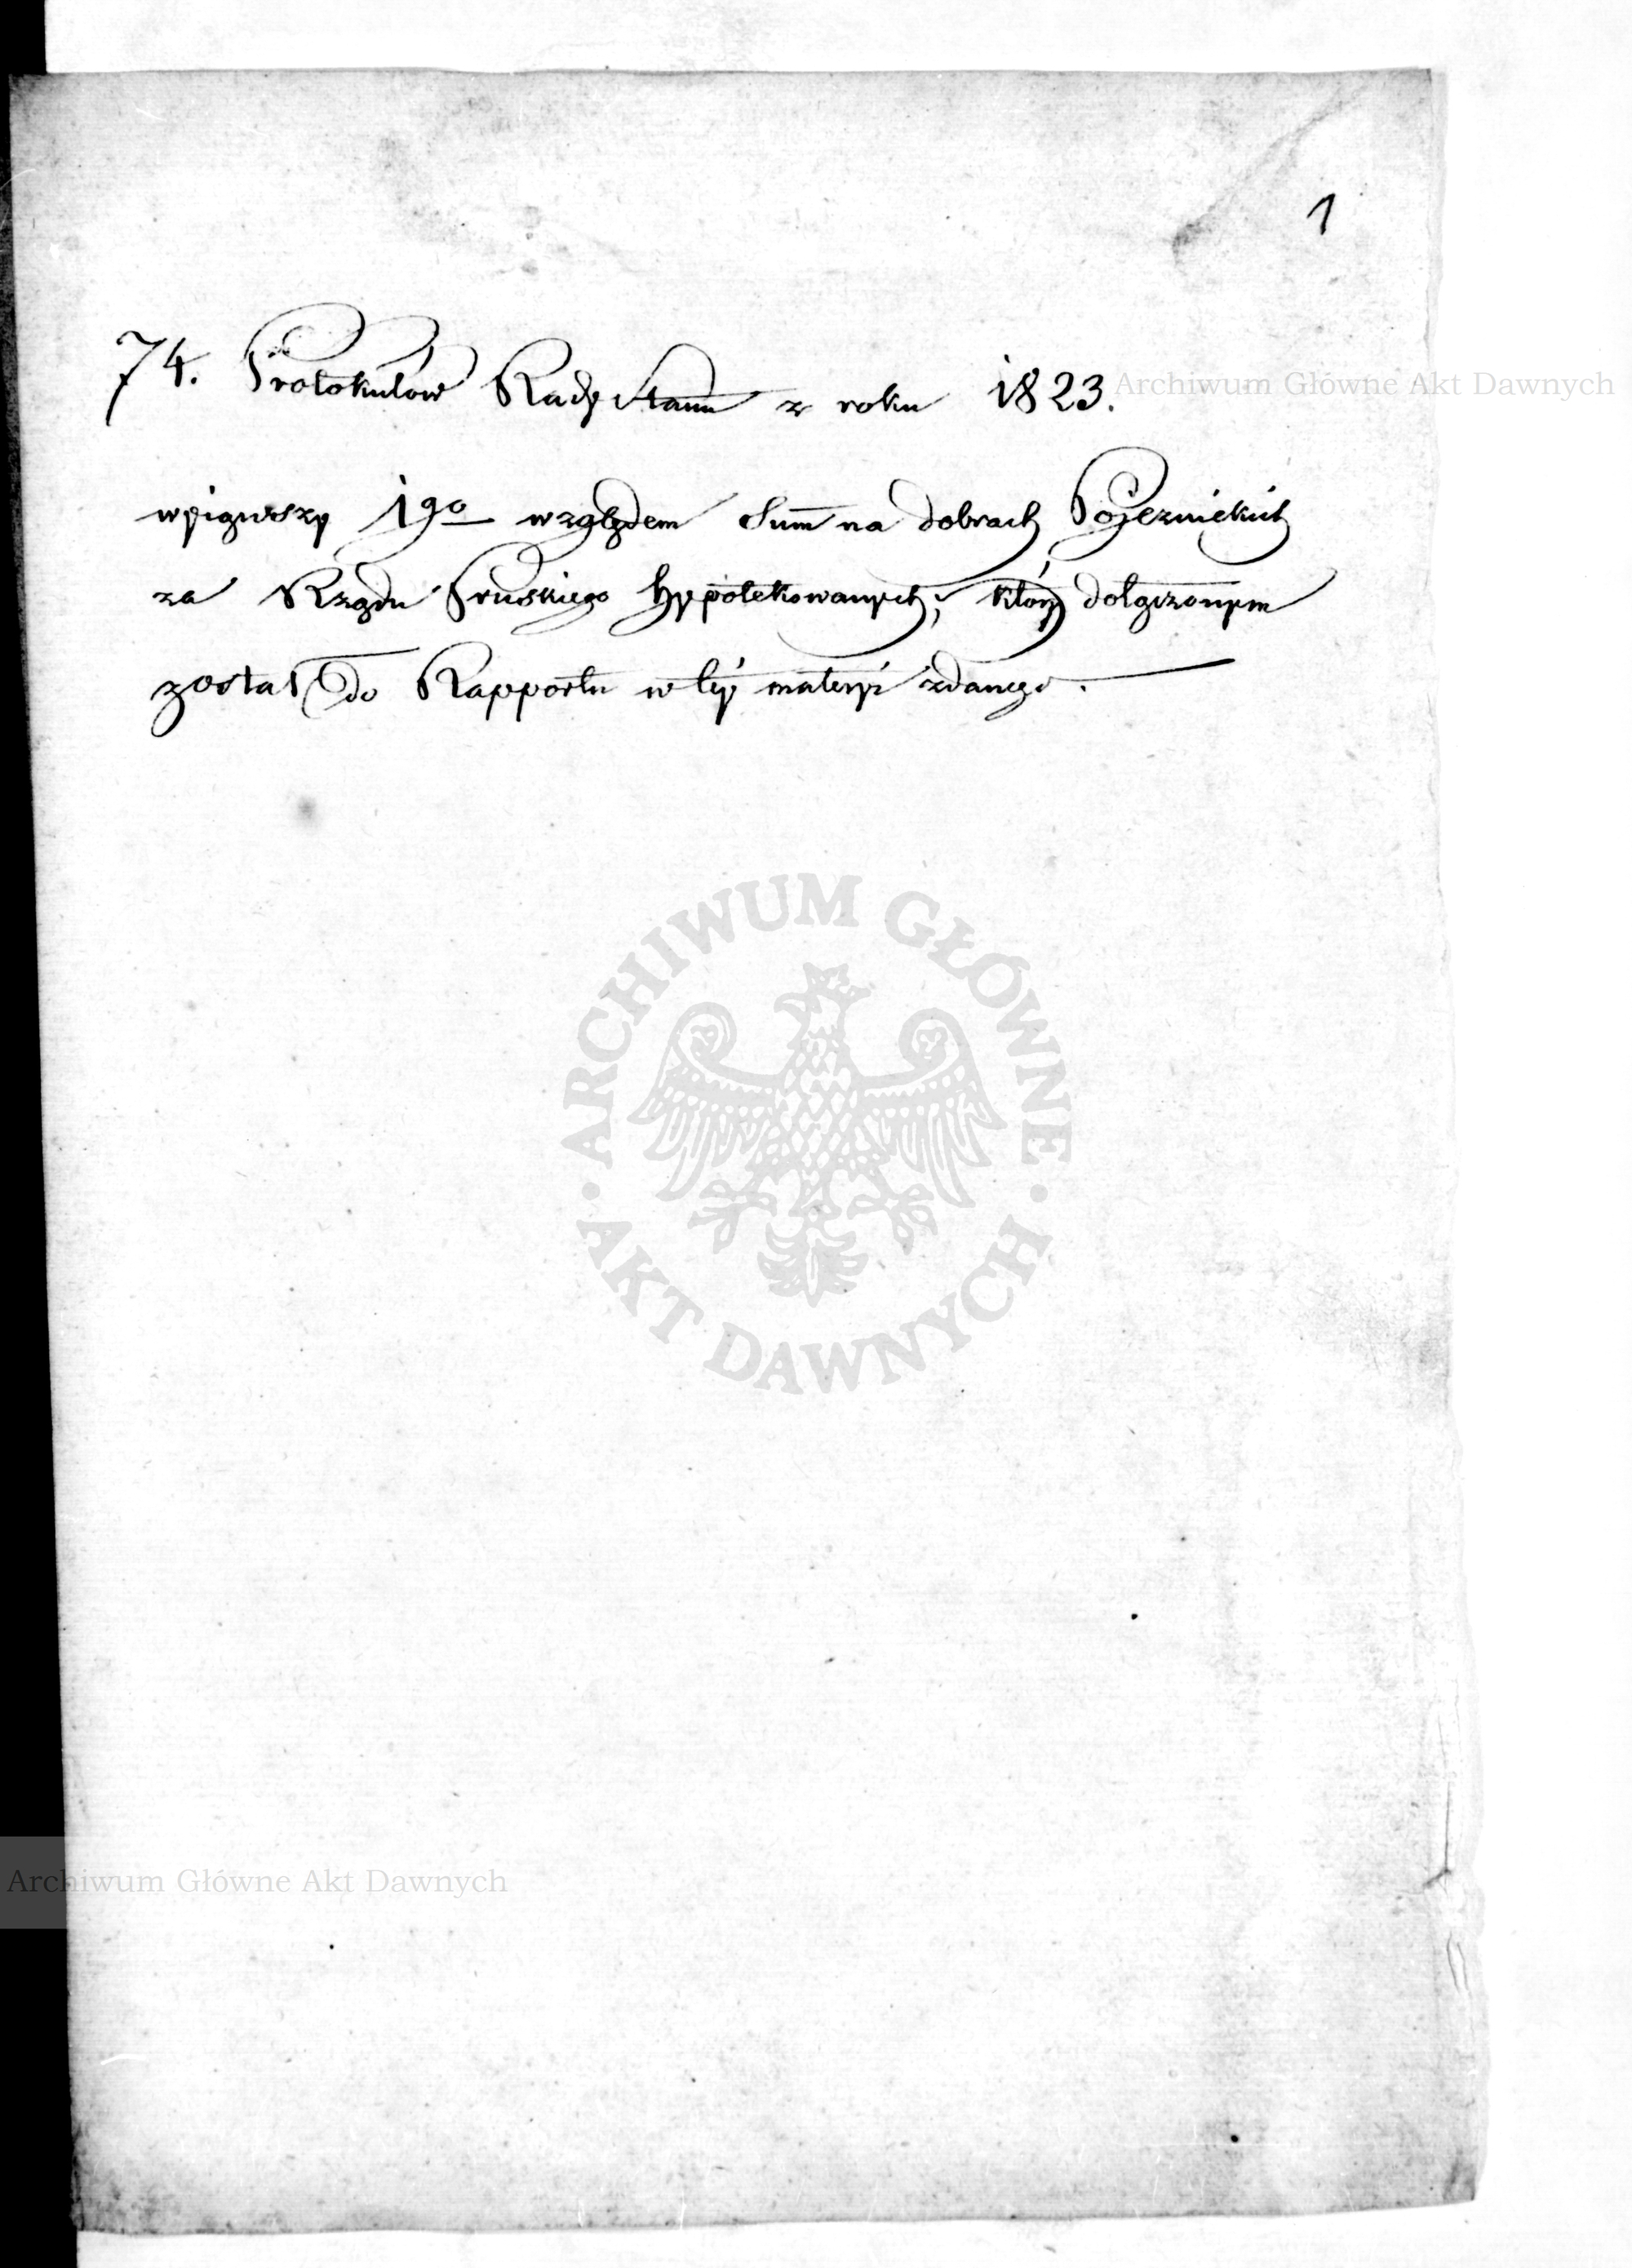 1
74. Protokułow Rady Stanu z roku 1823.
Archiwum Główne Akt Dawnych
wyiąwszy 1go względem Summ na dobrach Pojezuickich
za Rządu Pruskiego hypotekowanych; który dołączonym
został do Rapportu w tey materyi zdanego.
ARCHIWUM GŁÓWNE
AKT DAWNYCH
Archiwum Główne Akt Dawnych